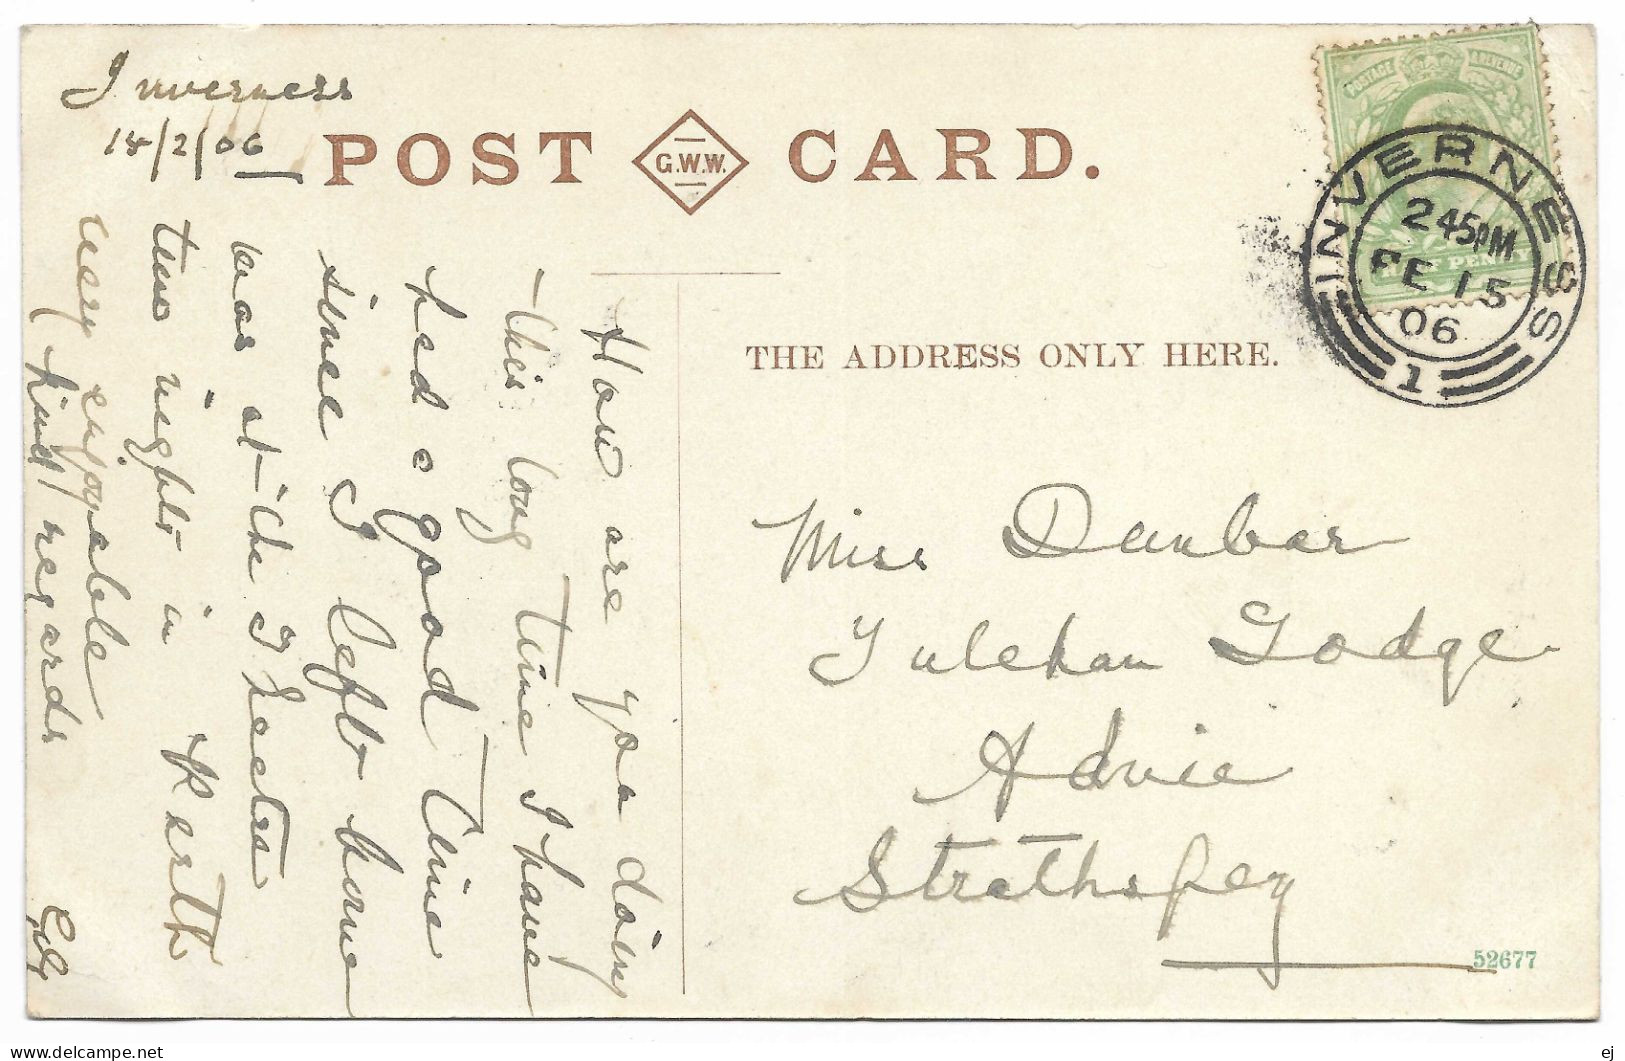 Inverness
14/2/06
POST CARD.
G.W.W.
POSTAGE & REVENUE
HALF PENNY
INVERNESS
2 45PM
FE 15
06
1
THE ADDRESS ONLY HERE.
How are you doing
this long time I have
had a good time
since I left home
was at the Theatre
two nights in Perth
very enjoyable
kind regards
Miss Dunbar
Tulchan Lodge
Advie
Strathspey
52677
www.delcampe.net
ej